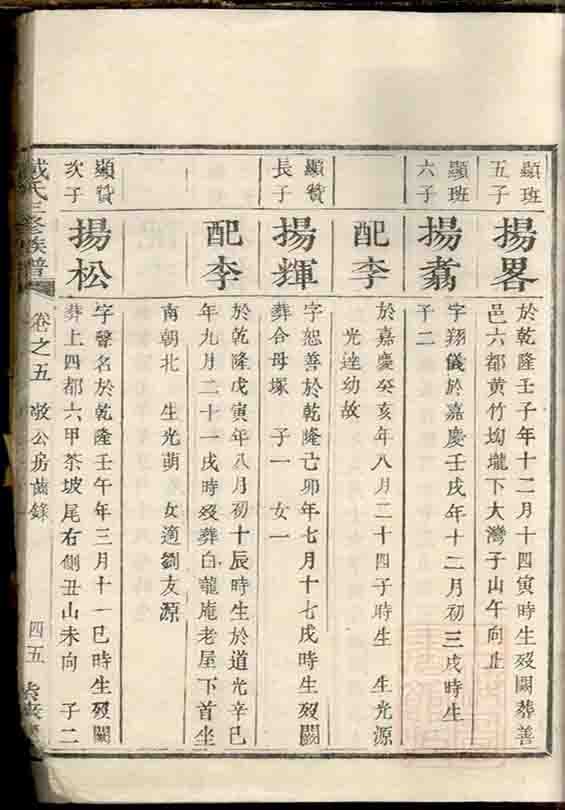 顯班
五子
揚畧
於乾隆壬子年十二月十四寅時生歿闕葬善
邑六都黄竹坳壠下大灣子山午向止
顯班
六子
揚翥
字翔儀於嘉慶壬戌年十二月初三戌時生
子二
配李
於嘉慶癸亥年八月二十四子時生 生光源
光達幼故
顯贊
長子
揚輝
字恕善於乾隆己卯年七月十七戌時生歿闕
葬合母塚 子一 女一
配李
於乾隆戊寅年八月初十辰時生於道光辛巳
年九月二十一戌時歿葬白蓮庵老屋下首坐
南朝北 生光萌 女適劉友源
顯贊
次子
揚松
字聲名於乾隆壬午年三月十一巳時生歿闕
葬上四都六甲茶坡尾右側丑山未向 子二
戴氏三修族譜
卷之五
公房齒錄
四五